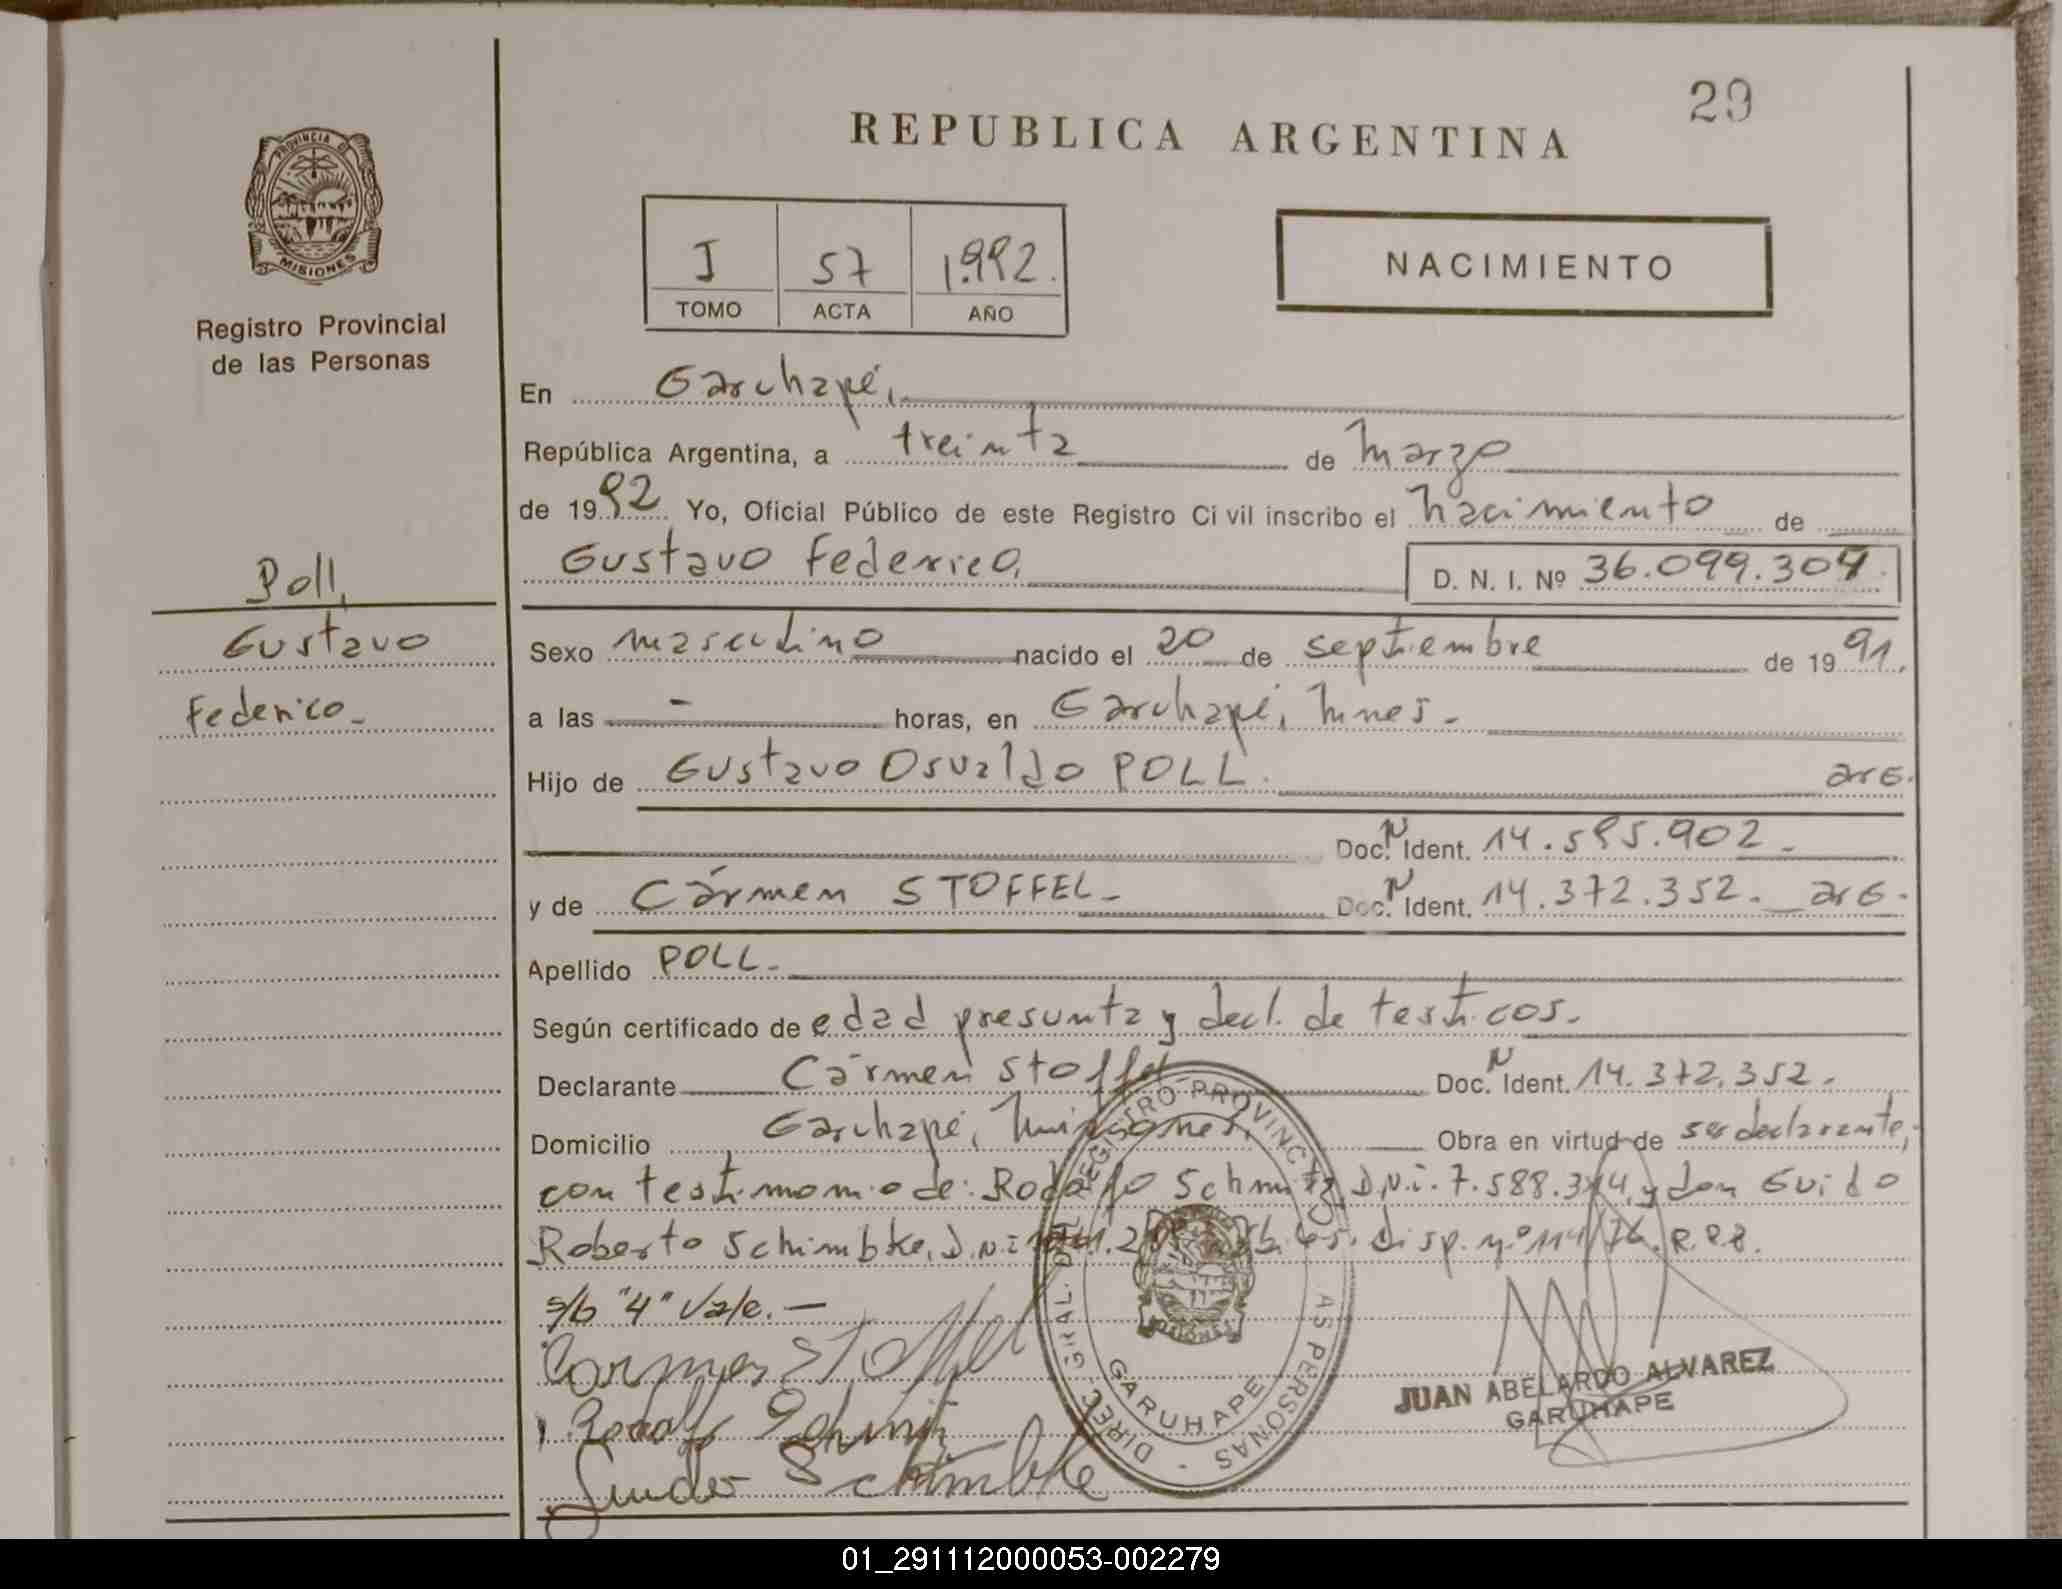 29
REPUBLICA ARGENTINA
PROVINCIA D
MISIONES
Registro Provincial
de las Personas
I 57 1.992.
TOMO ACTA AÑO
NACIMIENTO
En Garuhapé,
República Argentina, a treinta de Marzo
de 1992 Yo, Oficial Público de este Registro Civil inscribo el nacimiento de
Gustavo Federico, D. N. I. Nº 36.099.304
Poll,
Gustavo
Federico.-
Sexo masculino nacido el 20 de septiembre de 1991.
a las - horas, en Garuhapé, Mnes.-
Hijo de Gustavo Osvaldo POLL. arg.
Doc. N Ident. 14.595.902.-
y de Cármen STOFFEL- Doc. N Ident. 14.372.352. arg.
Apellido POLL-
Según certificado de edad presunta y decl. de testicos.
Declarante Cármen Stoffel Doc. N Ident. 14.372.352.
Domicilio Garuhapé, Misiones. Obra en virtud de ser declarante,
con testimonio de: Rodolfo Schmitz, D.N.i. 7.588.344, y don Guido
Roberto Schimbke, D.N.i disp. nº 114/76. R.P.P.
s/b "4" Vale.-
Carmen Stoffel
Rodolfo Schmitz
Guido Schimbke
DIREC. GRAL. DEL REGISTRO PROVINCIAL AS PERSONAS
MISIONES
GARUHAPE
JUAN ABELARDO ALVAREZ
GARUHAPE
01_291112000053-002279